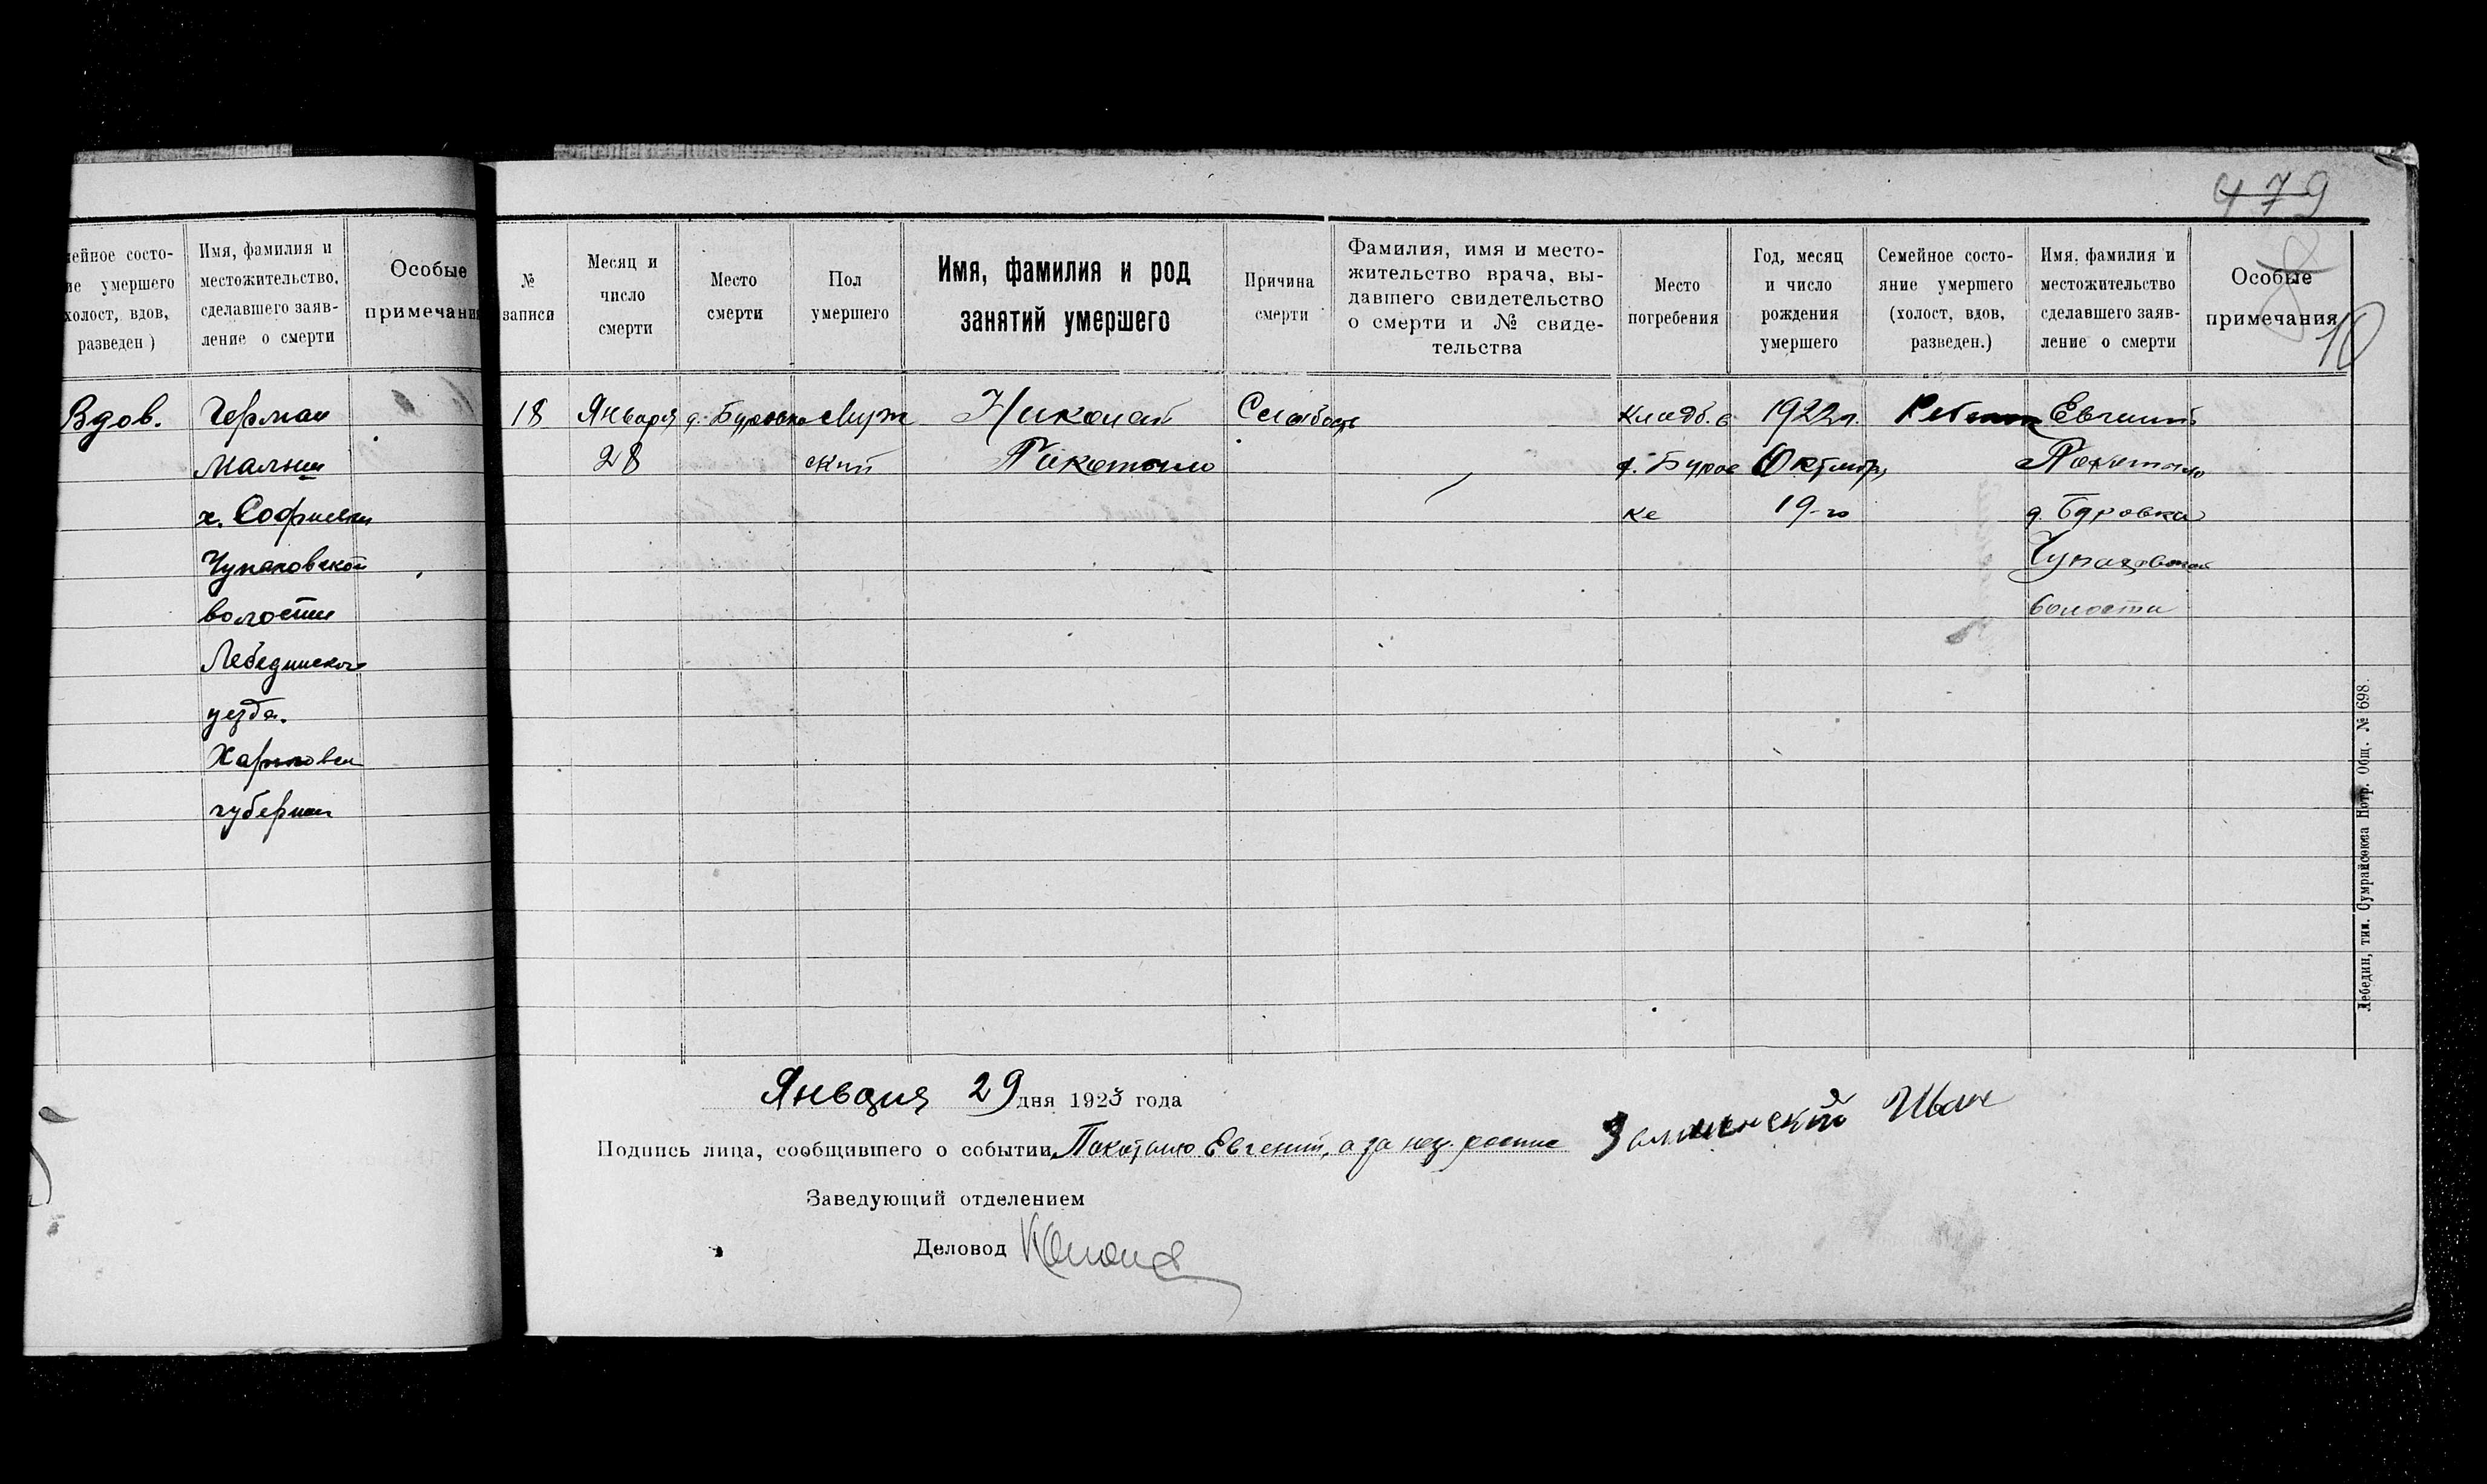 479
10
ейное состо-
ие умершего
холост, вдов,
разведен)
Имя, фамилия и
местожительство,
сделавшего заяв-
ление о смерти
Особые
примечания
Вдов.
Герман
х. Софиевки
Чупаховской
волости
Лебединского
уезда.
Харьковск
губернии
№
записи
Месяц и
число
смерти
Место
смерти
Пол
умершего
Имя, фамилия и род
занятий умершего
Причина
смерти
Фамилия, имя и место-
жительство врача, вы-
давшего свидетельство
о смерти и № свиде-
тельства
Место
погребения
Год, месяц
и число
рождения
умершего
Семейное состо-
яние умершего
(холост, вдов,
разведен.)
Имя, фамилия и
местожительство
сделавшего заяв-
ление о смерти
Особые
примечания
18
Января
28
д. Буровка
Муж
ской
Николай
Покотило
Слабость
Кладб. в
д. Буров
ке
1922 г.
Октябр,
19-го
Евгений
Покотило
д. Буровка
Чупаховской
волости
Января 29 дня 1923 года
Подпись лица, сообщившего о событии Покотило Евгений, а за нег. роспис Иван
Заведующий отделением
Деловод
Лебедин, тип. Сумрайсоюза Потр. Общ. № 698.